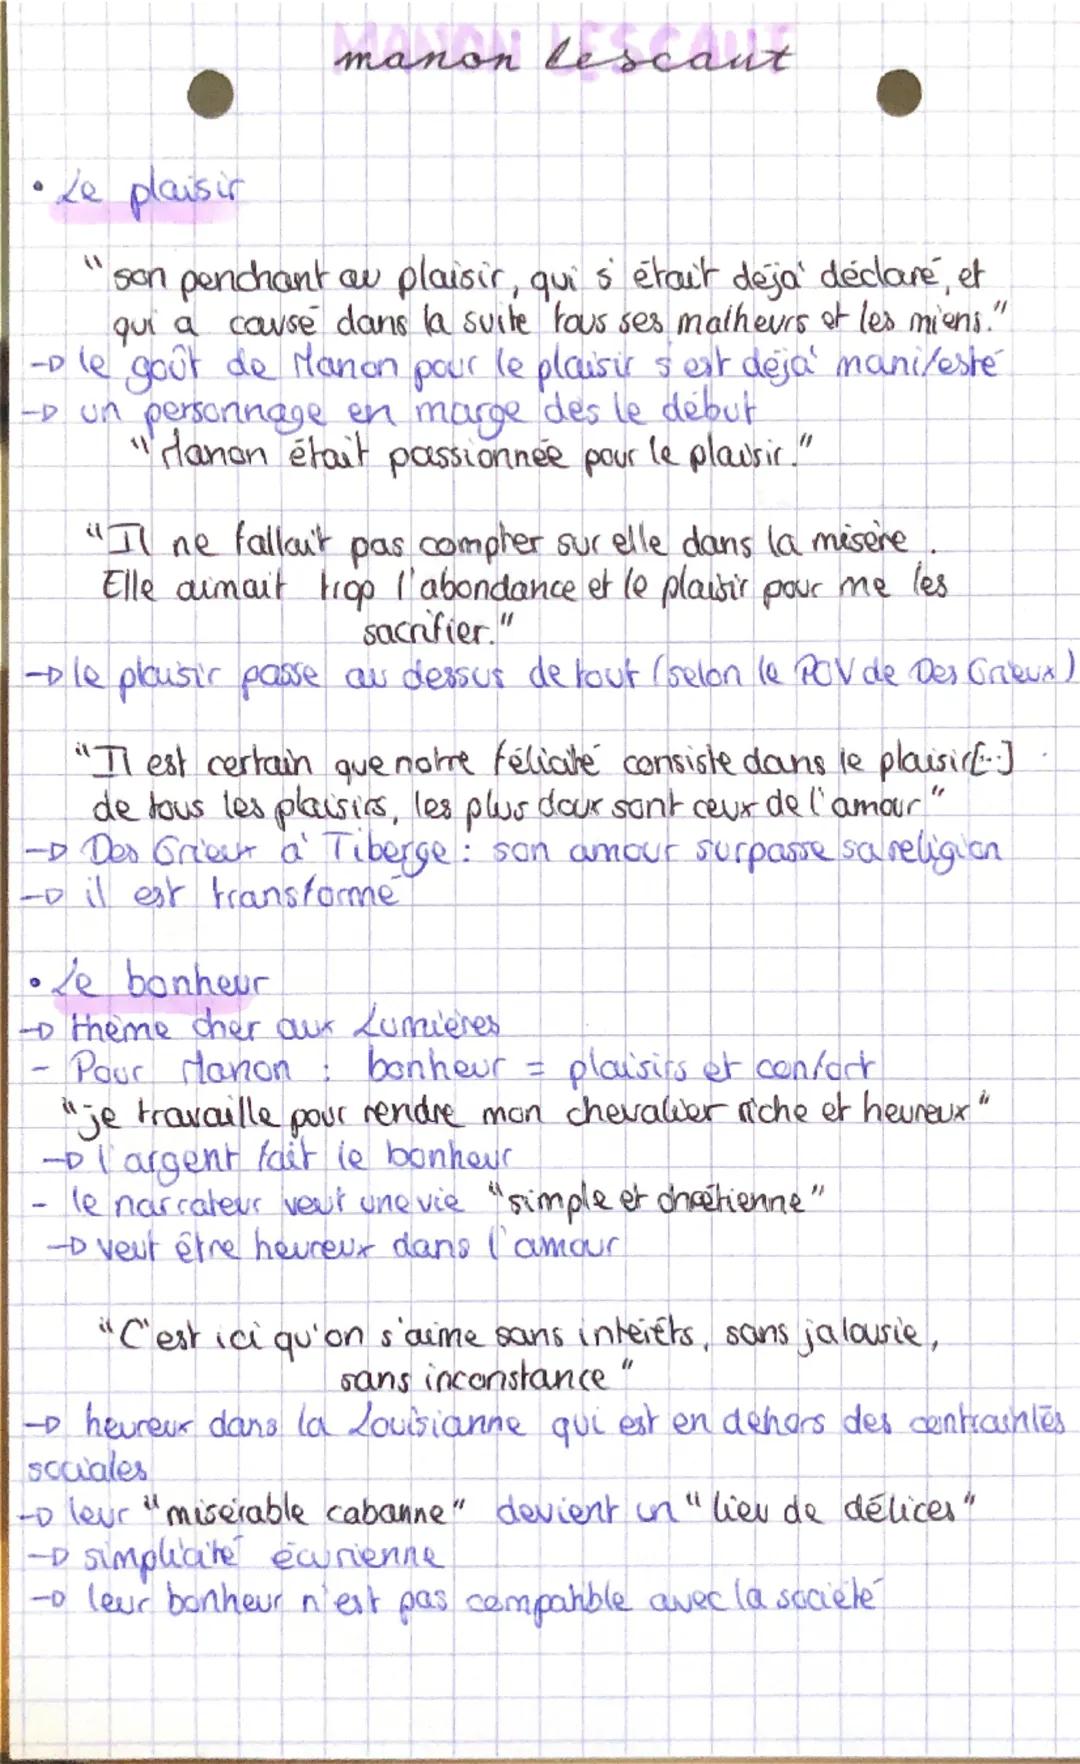 MANON LESCAUT
manon lescaut
• Le plaisir
"son penchant au plaisir, qui s'était déjà déclaré, et
qui a causé dans la suite tous ses malheurs et les miens."
→ le goût de Manon pour le plaisir s'est déjà manifesté
→ un personnage en marge des le début
"Manon était passionnée pour le plaisir."
"Il ne fallait pas compter sur elle dans la misère.
Elle aimait trop l'abondance et le plaisir pour me les
sacrifier."
→ le plaisir passe au dessus de tout (selon le POV de Des Grieux)
"Il est certain que notre félicité consiste dans le plaisir[...]
de tous les plaisirs, les plus doux sont ceux de l'amour"
→ Des Grieux à Tiberge : son amour surpasse sa religion
→ il est transformé
• Le bonheur
→ thème cher aux Lumières
- Pour Manon : bonheur = plaisirs et confort
"je travaille pour rendre mon chevalier riche et heureux"
→ l'argent fait le bonheur
- le narrateur veut une vie "simple et chrétienne"
→ veut être heureux dans l'amour
"C'est ici qu'on s'aime sans intérêts, sans jalousie,
sans inconstance"
→ heureux dans la Louisianne qui est en dehors des contraintes
sociales
→ leur "misérable cabanne" devient un "lieu de délices"
→ simplicité écurienne
→ leur bonheur n'est pas compatible avec la société